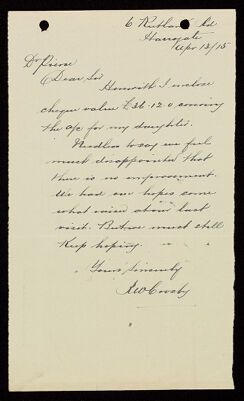 6 Rutland Rd
Harrogate
Apr 13/15
Dr Pierce
Dear Sir
Herewith I enclose
cheque value £36.12.0 covering
the a/c for my daughter.
Needless to say we feel
much disappointed that
there is no improvement.
We had our hopes some
what raised about last
visit. But we must still
keep hoping.
Yours sincerely